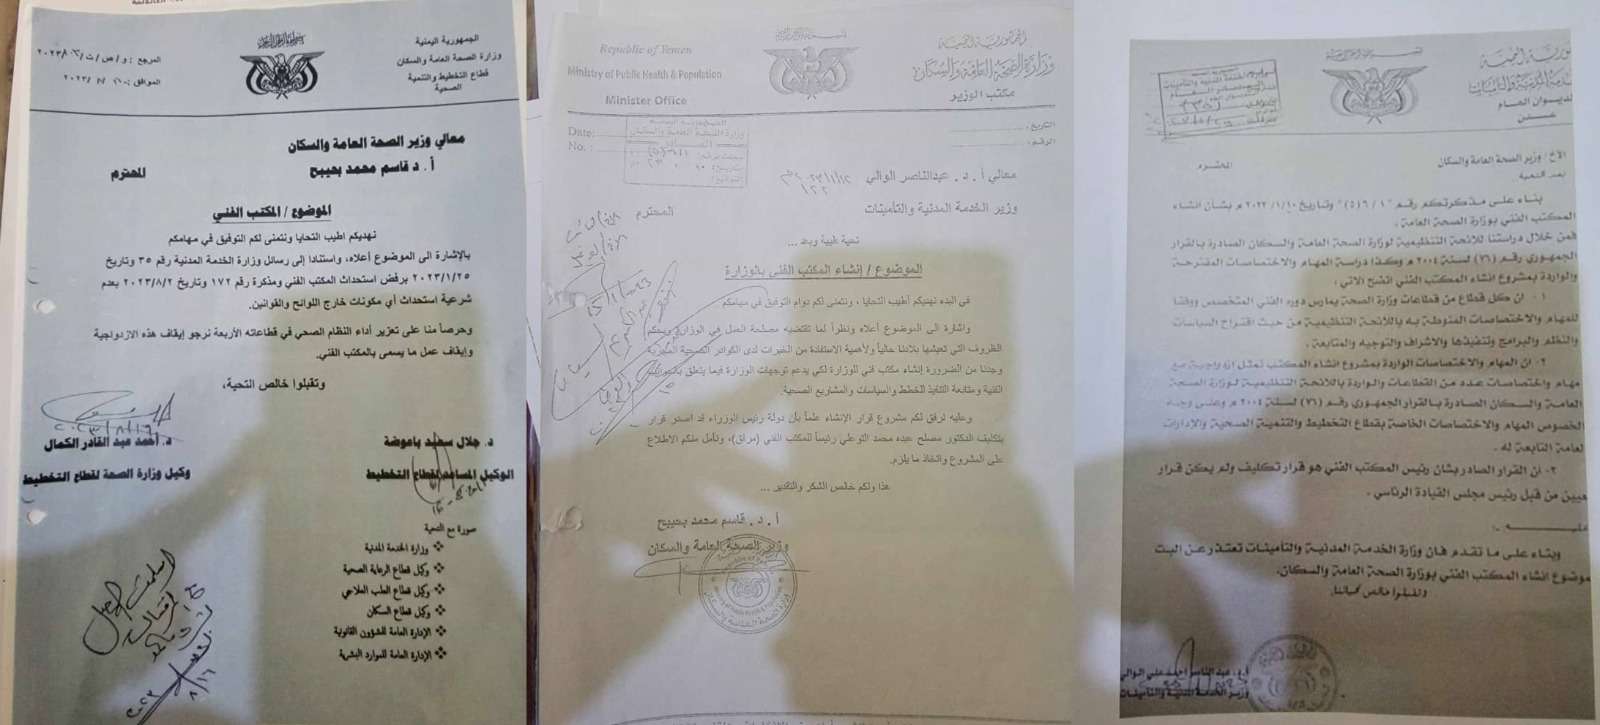 الجمهورية اليمنية
وزارة الصحة العامة والسكان
قطاع التخطيط والتنمية
الصحية
معالي وزير الصحة العامة والسكان
أ . د قاسم محمد بحيبح المحترم
الموضوع / المكتب الفني
نهديكم اطيب التحايا ونتمنى لكم التوفيق في مهامكم
بالإشارة الى الموضوع أعلاه، واستنادا إلى رسائل وزارة الخدمة المدنية رقم ٣٥ وتاريخ
٢٠٢٣/١/٢٥ برفض استحداث المكتب الفني ومذكرة رقم ١٧٢ وتاريخ ٢٠٢٣/٨/٢ بعدم
شرعية استحداث أي مكونات خارج اللوائح والقوانين.
وحرصاً منا على تعزيز أداء النظام الصحي في قطاعاته الأربعة نرجو إيقاف هذه الازدواجية
وإيقاف عمل ما يسمى بالمكتب الفني.
وتقبلوا خالص التحية،
د. جلال سعيد باعوضة
الوكيل المساعد لقطاع التخطيط
د. أحمد عبد القادر الكمال
وكيل وزارة الصحة لقطاع التخطيط
صورة مع التحية
❖ وزارة الخدمة المدنية
❖ وكيل قطاع الرعاية الصحية
❖ وكيل قطاع الطب العلاجي
❖ وكيل قطاع السكان
❖ الإدارة العامة للشؤون القانونية
❖ الإدارة العامة للموارد البشرية
Republic of Yemen
Ministry of Public Health & Population
Minister Office
Date:
No. :
الجمهورية اليمنية
وزارة الصحة العامة والسكان
مكتب الوزير
التاريخ:
الرقم:
معالي أ . د. عبدالناصر الوالي
وزير الخدمة المدنية والتأمينات المحترم
تحية طيبة وبعد ...
الموضوع / إنشاء المكتب الفني بالوزارة
في البدء نهديكم أطيب التحايا ، ونتمنى لكم دوام التوفيق في مهامكم
واشارة الى الموضوع أعلاه ونظراً لما تقتضيه مصلحة العمل في الوزارة وبحكم
الظروف التي تعيشها بلادنا حالياً ولأهمية الاستفادة من الخبرات لدى الكوادر الصحية
وجدنا من الضرورة إنشاء مكتب فني للوزارة لكي يدعم توجهات الوزارة فيما يتعلق بالجوانب
الفنية ومتابعة التنفيذ للخطط والسياسات والمشاريع الصحية.
وعليه نرفق لكم مشروع قرار الإنشاء علماً بأن دولة رئيس الوزراء قد اصدر قرار
بتكليف الدكتور مصلح عبده محمد التوعلي رئيساً للمكتب الفني (مرفق)، ونأمل منكم الاطلاع
على المشروع واتخاذ ما يلزم.
هذا ولكم خالص الشكر والتقدير ...
أ . د. قاسم محمد بحيبح
وزير الصحة العامة والسكان
الأخ / وزير الصحة العامة والسكان المحترم
بعد التحية
بناء على مذكرتكم رقم "٦/١(٥)" وتاريخ ٢٠٢٢/١/١٠م بشأن انشاء
المكتب الفني بوزارة الصحة العامة .
فمن خلال دراستنا للائحة التنظيمية لوزارة الصحة العامة والسكان الصادرة بالقرار
الجمهوري رقم (٧٦) لسنة ٢٠٠٤م وكذا دراسة المهام والاختصاصات المقترحة
والواردة بمشروع انشاء المكتب الفني اتضح الاتي :
١- ان كل قطاع من قطاعات وزارة الصحة يمارس دوره الفني المتخصص ووفقا
للمهام والاختصاصات المنوطة به باللائحة التنظيمية من حيث اقتراح السياسات
والنظم والبرامج وتنفيذها والاشراف والتوجيه والمتابعة .
٢- ان المهام والاختصاصات الواردة بمشروع انشاء المكتب تمثل ازدواجية مع
مهام واختصاصات عدد من القطاعات والواردة باللائحة التنظيمية لوزارة الصحة
العامة والسكان الصادرة بالقرار الجمهوري رقم (٧٦) لسنة ٢٠٠٤م وعلى وجه
الخصوص المهام والاختصاصات الخاصة بقطاع التخطيط والتنمية الصحية والإدارات
لعامة التابعة له .
٣- ان القرار الصادر بشان رئيس المكتب الفني هو قرار تكليف ولم يكن قرار
عيين من قبل رئيس مجلس القيادة الرئاسي .
وبناء على ما تقدم فان وزارة الخدمة المدنية والتأمينات تعتذر عن البت
موضوع انشاء المكتب الفني بوزارة الصحة العامة والسكان.
وتقبلوا خالص تحياتنا.
أ.د. عبد الناصر احمد علي الوالي
وزير الخدمة المدنية والتأمينات